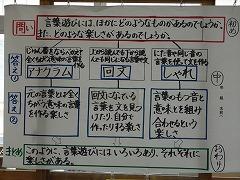 問い
言葉遊びには、ほかにどのようなものがあるのでしょうか。
また、どのような楽しさがあるのでしょうか。
初め
答え①
じゅん番をならべかえて
全くべつの意味の言葉
を作る
アナグラム
上から読んでも下から読
んでも同じになる言葉や文
回文
にた音や同じ音の
言葉を使って文を作る
しゃれ
中
答え②
元の言葉とは全く
ちがう意味の言葉
を作る楽しさ
回文になっている
言葉や文を見つけ
たり、自分で
作ったりする楽しさ
言葉のもつ音と
意味とを組み
合わせるという
楽しさ
まとめ
このように、言葉遊びにはいろいろあり、それぞれに
楽しさがある。
おわり